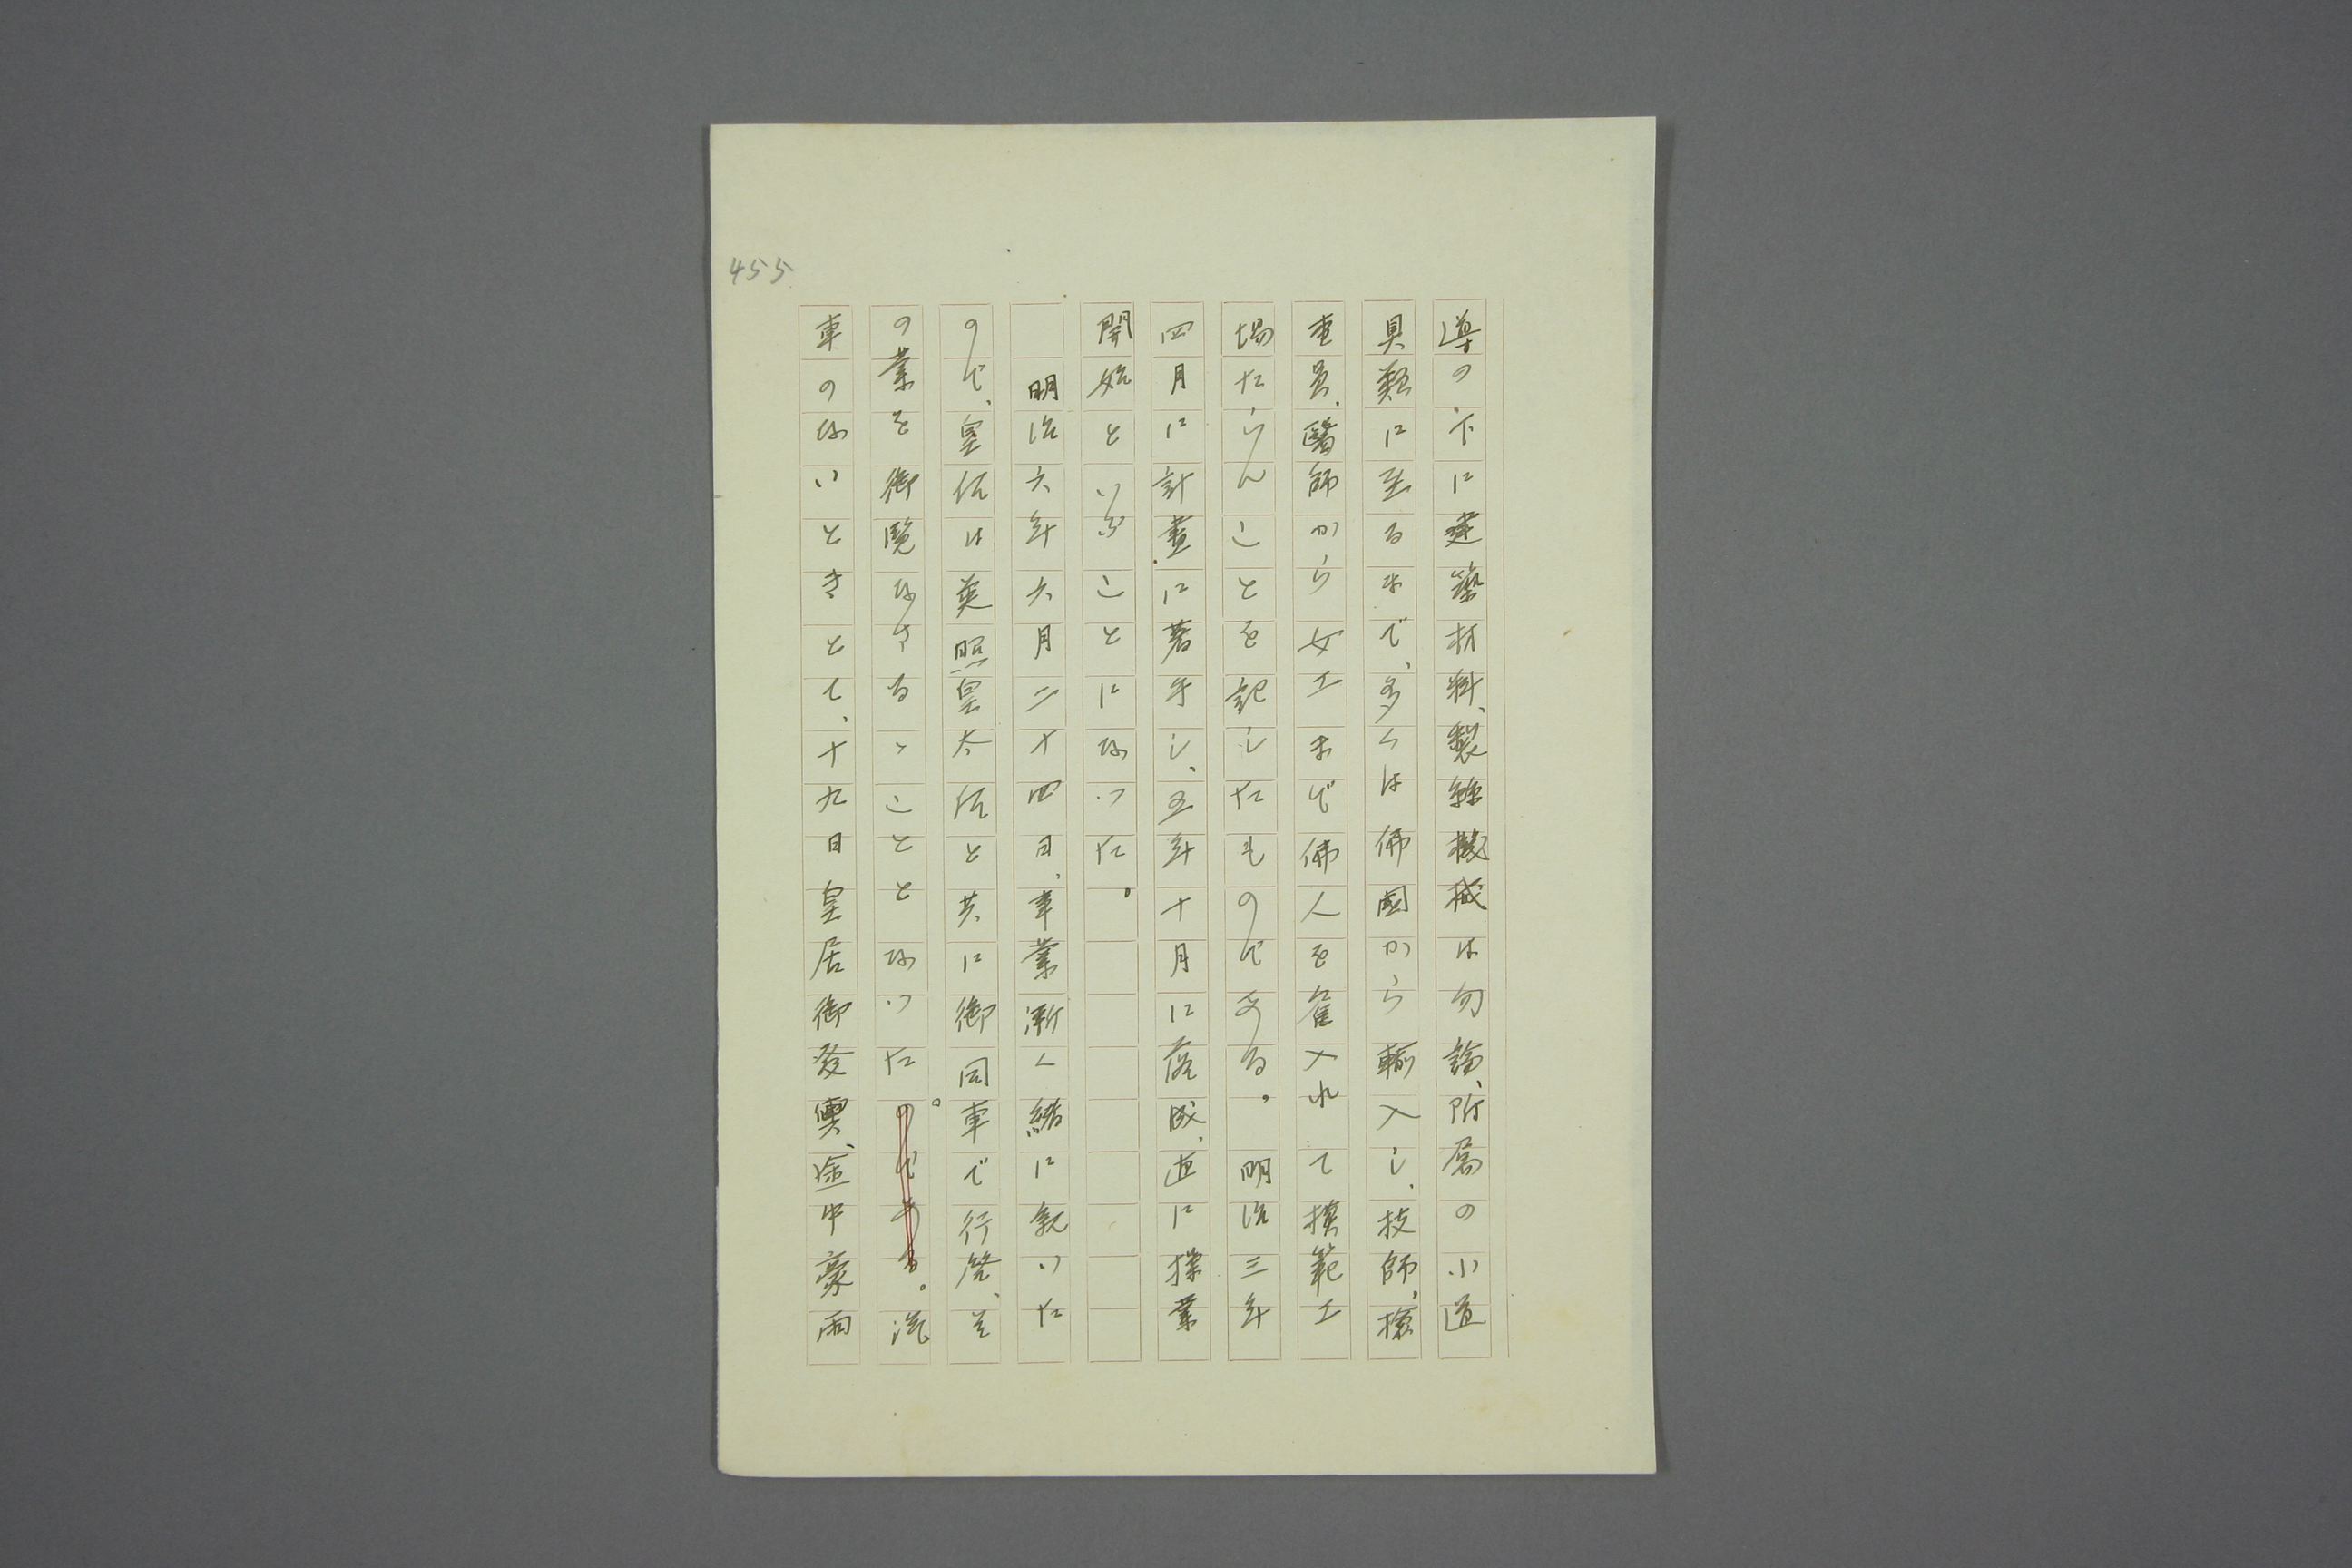 455
導の下に建築材料、製絲機械は勿論、附屬の小道
具類に至るまで、多くは佛國から輸入し、技師、檢
査員、醫師から女工まで佛人を雇入れて摸範工
場たらんことを記したものである。明治三年
四月に計畫に著手し、五年十月に落成、直に操業
開始といふことになつた。
明治六年六月二十四日、事業漸く緒に就いた
ので、皇后は英照皇太后と共に御同車で行啓、そ
の業を御覽なさるゝこととなつた。のである。汽
車のないときとて、十九日皇居御發輿、途中豪雨